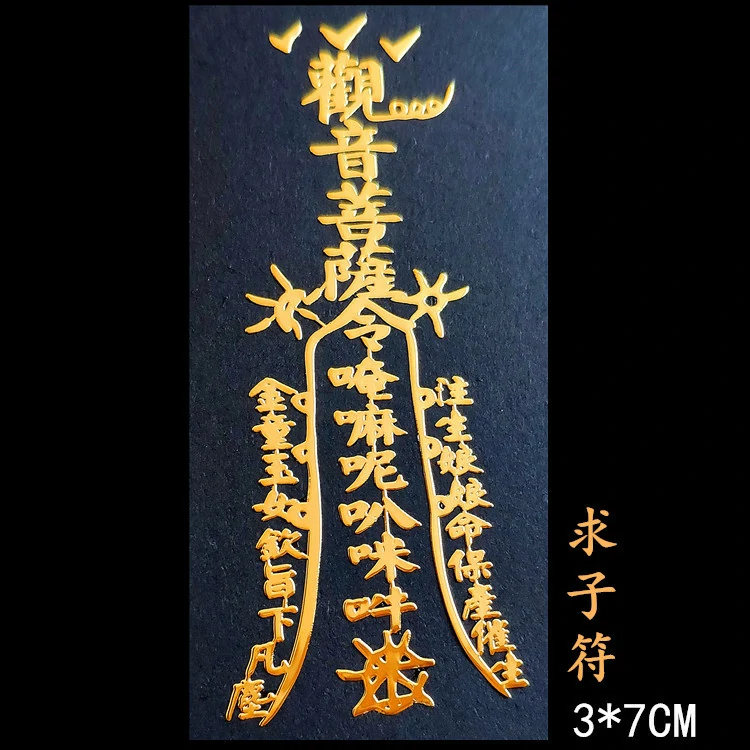 觀音菩薩令唵嘛呢叭咪吽
注生娘娘命保產催生
金童玉女欽旨下凡塵
求子符
3*7CM